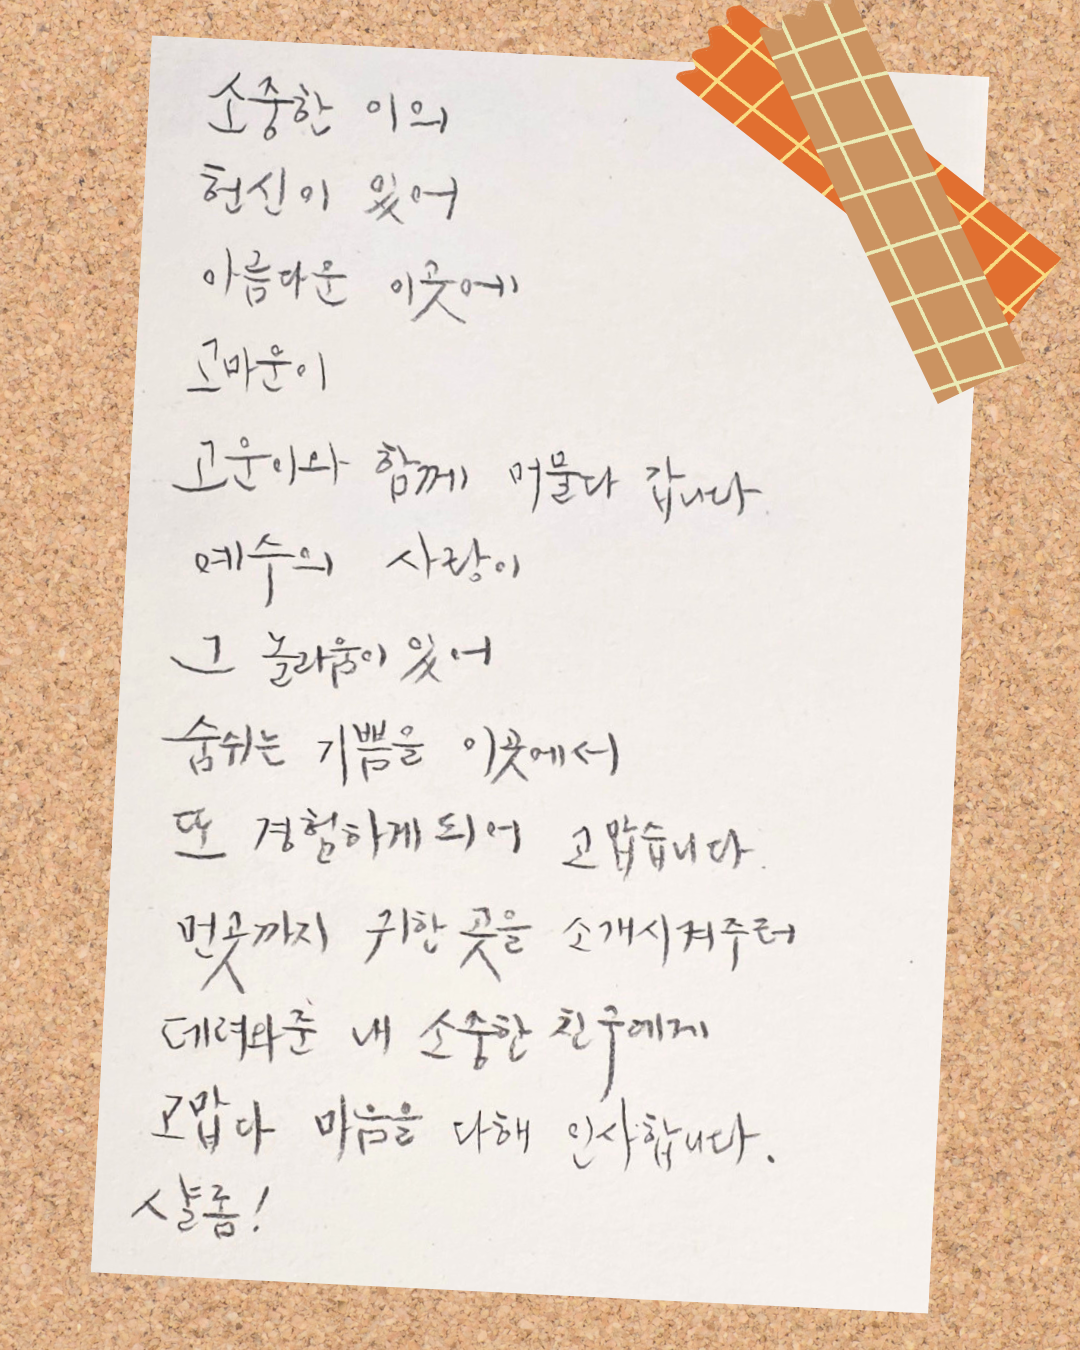 소중한 이의
헌신이 있어
아름다운 이곳에
고마운이
고운이와 함께 머물다 갑니다.
예수의 사랑이
그 놀라움이 있어
숨쉬는 기쁨을 이곳에서
또 경험하게 되어 고맙습니다.
먼곳까지 귀한 곳을 소개시켜주러
데려와준 내 소중한 친구에게
고맙다 마음을 다해 인사합니다.
샬롬!